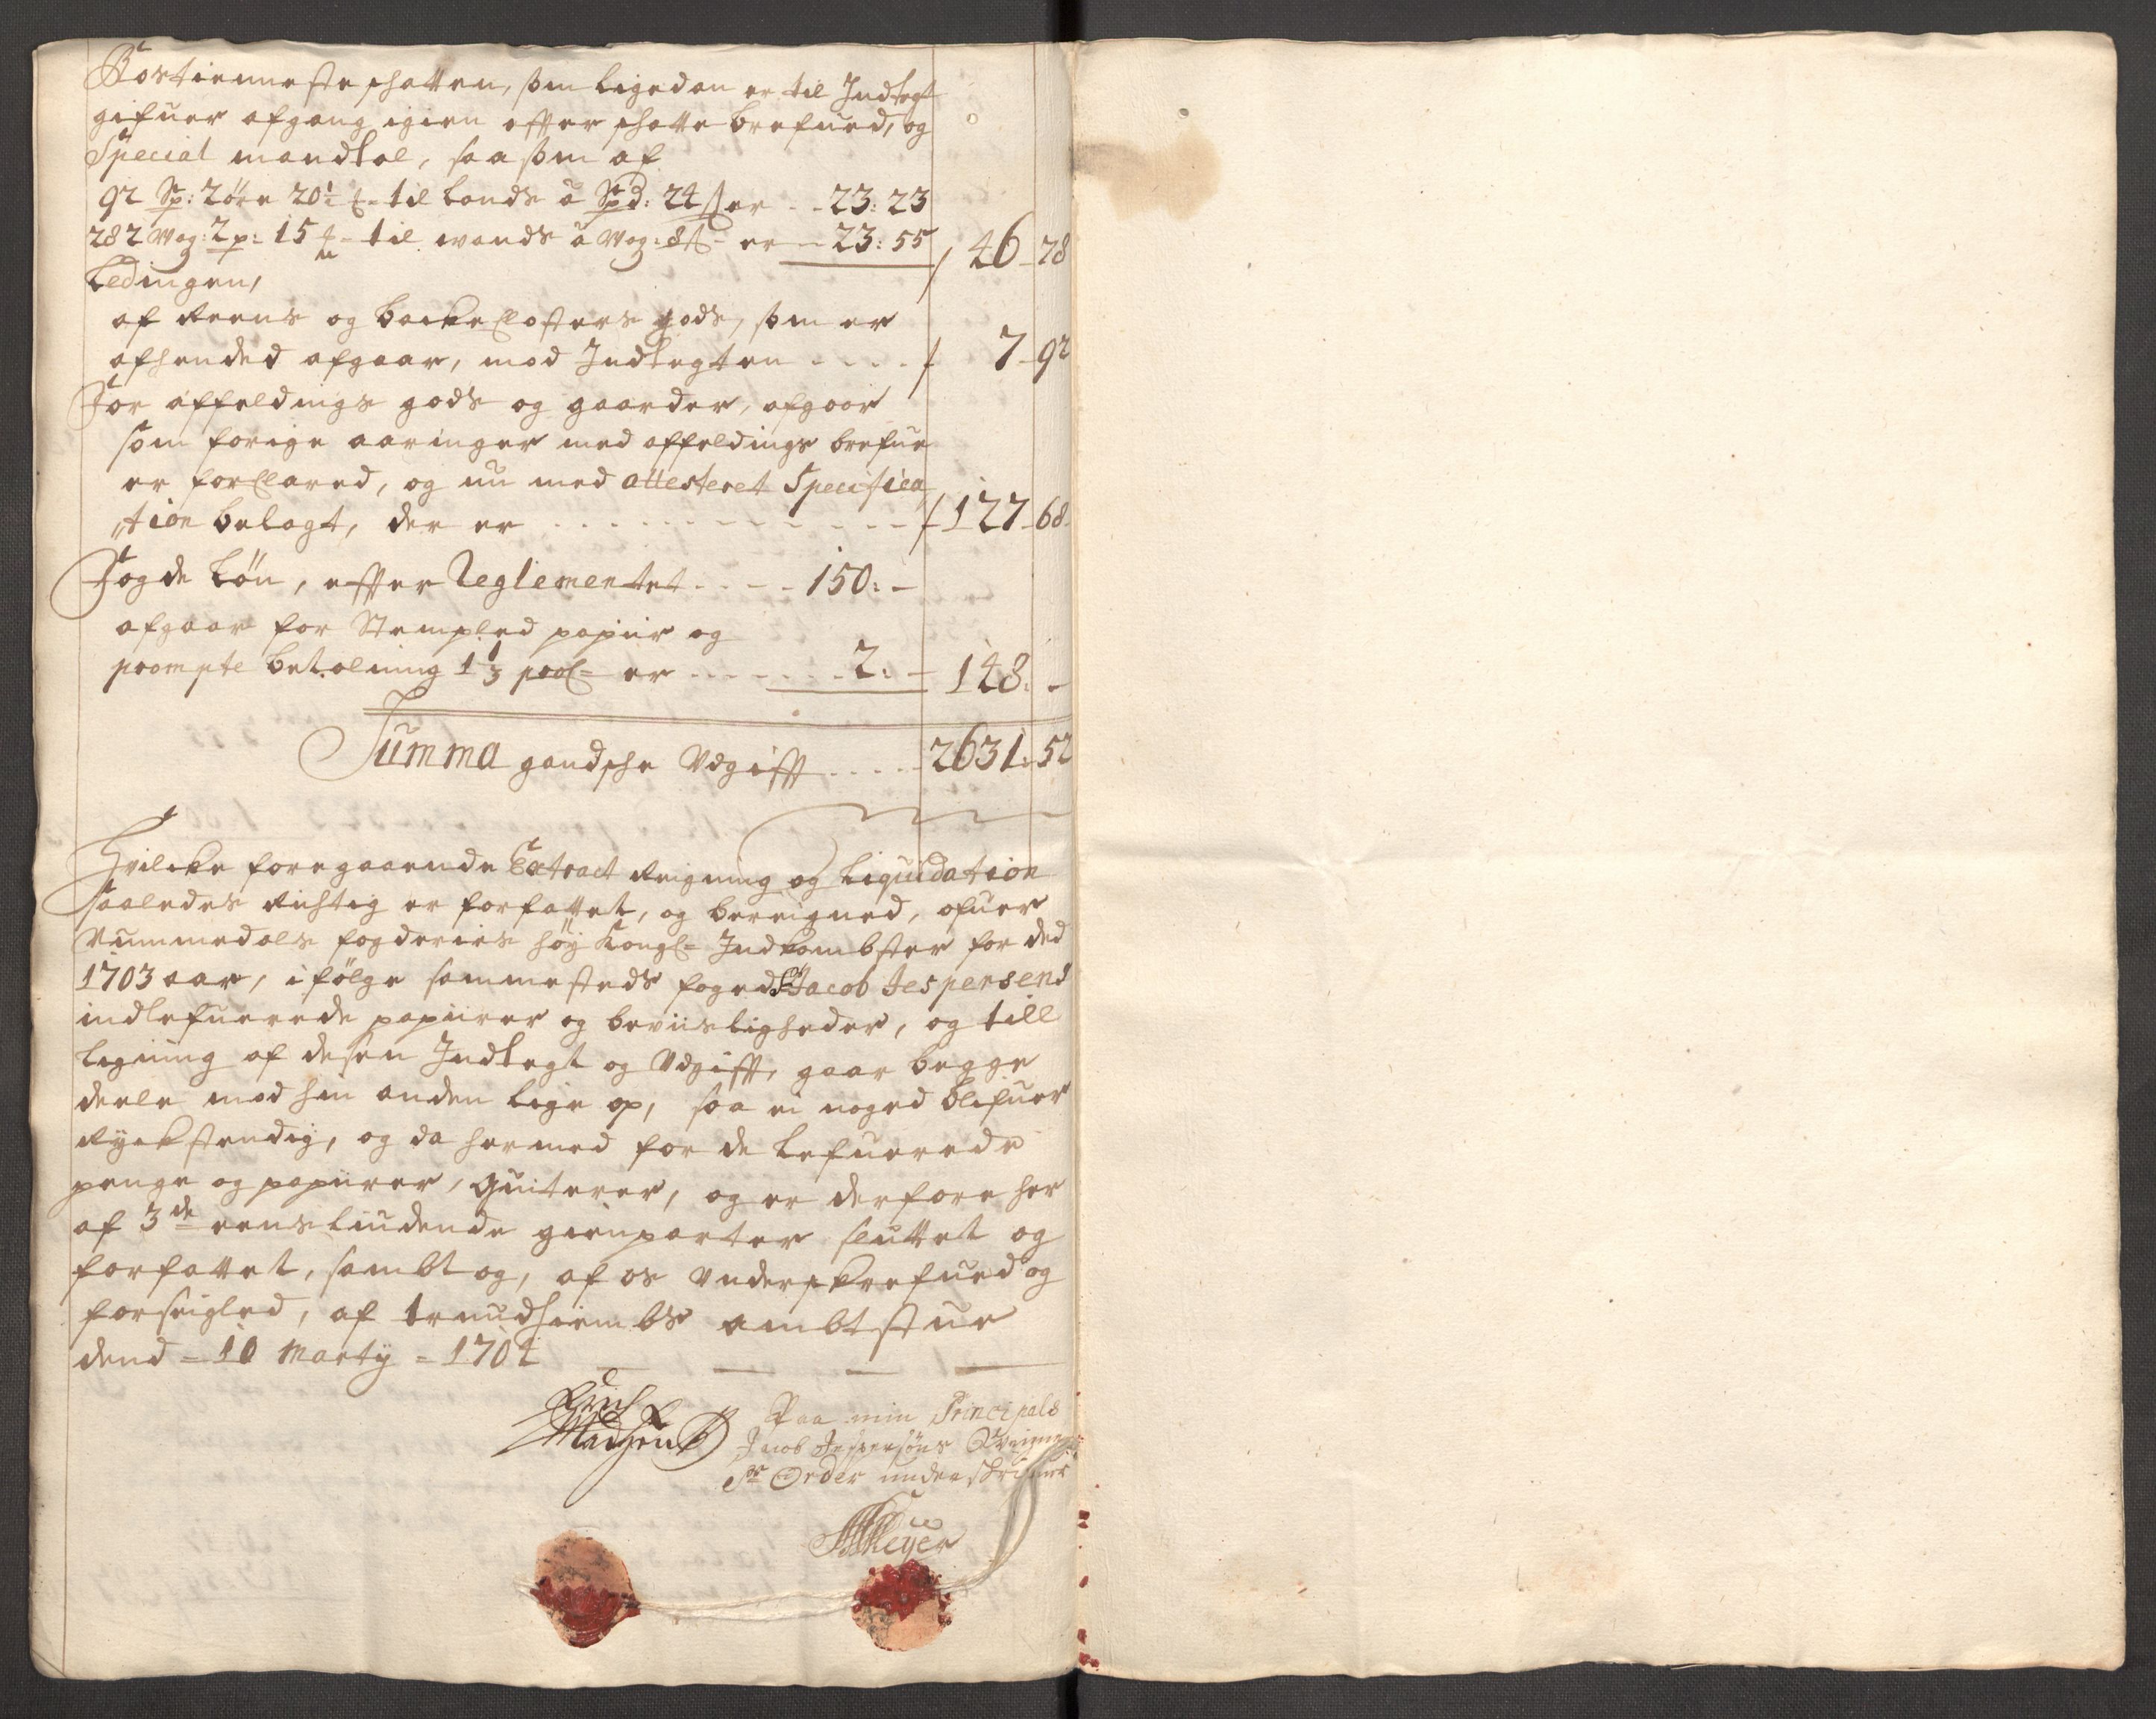 Rostienneste schatten, som ligedan er til Indtegt
gifuer afgang igien efter schatte brefued, og
Special mandtal, saasom af
92 Sp: 2 öre til lands à Spd: 24 ß er - - 23: 23
282 Wog: 2 p: 15 til wands à Wog: 8 ß - er - 23: 55 / 46 - 78
Ledingen,
af Reens og backe Closters gods, som er
afhended afgaar, mod Indtegten - - - - / 7 - 92
For affeldings gods og gaarder, afgaar
som forige aaringer med affeldings brefue
er forClared, og nu med attesteret Specifica
tion belagt, der er - - - - - - / 127 - 68.
Fogde Lön, effter Reglementet - - - - 150: -
afgaar for Stempled papiir og
prompte betalning 1 1/3 proC= er - - - - - - 2: - 148: -
Summa gandsche Udgifft - - - - 2631: 52
Hvilcke foregaaende Extract Reigning og Liquidation
saaledes Richtig er forfattet, og bereigned, ofuer
Nummedals fogderies höy Kongl= Indkombster for ded
1703 aar, i fölge sammesteds foged Sr Jacob Jespersens
indlefuerede papiirer og beviisligheder, og till
ligning af desen Indtegt og Udgifft, gaar begge
deele mod hin anden lige op, saa ei noged blifuer
Ryckstendig, og da hermed for de lefuerede
penge og papiirer, quiterer, og er derfore her
af 3de eensliudende gienparter sluttet og
forfattet, sambt og, af os underskrefued og
forseigled, af trundhiembs ambtstue
dend = 10 Marty = 1704
Madsen
Paa min Principals
Jacob Jespersöns Wegne
pr Order underskrifuer
Meyer